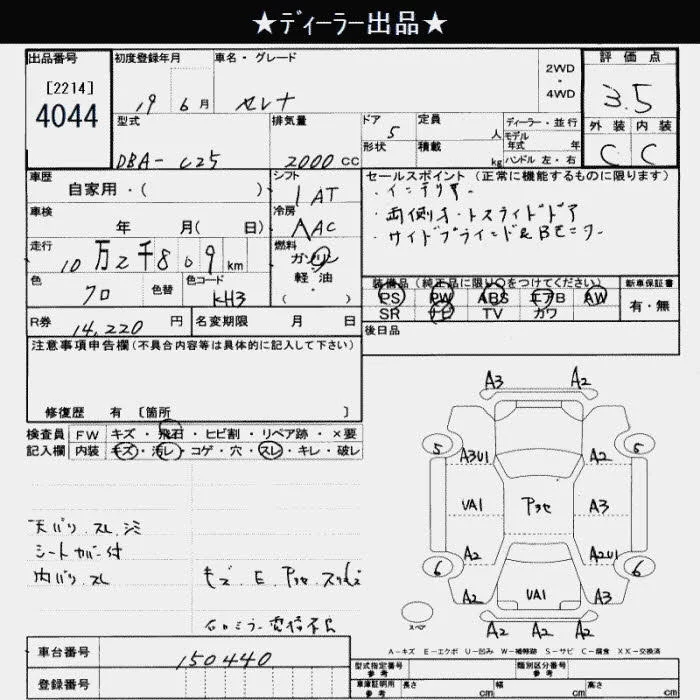 ★ディーラー出品★
出品番号
[2214]
4044
初度登録年月
19 6月
車名・グレード
セレナ
2WD
・
4WD
評価点
3.5
型式
DBA- C25
排気量
2000 CC
ドア 5
形状
定員 人
積載 kg
ディーラー・並行
モデル年式 年
ハンドル 左・右
外装 内装
C C
車歴
自家用・( )
シフト
1AT
車検
年 月( 日)
冷房
AAC
走行
10万2千809km
燃料
ガソリン
軽油
( )
色
クロ
色替
色コード
KH3
R券 14,220 円
名変期限 月 日
セールスポイント (正常に機能するものに限ります)
・インテリキー
・両側オートスライドドア
・サイドブラインド&Bモニター
装備品(純正品に限り○をつけてください)
PS PW ABS エアB AW
SR ナビ TV カワ
新車保証書
有・無
後日品
注意事項申告欄(不具合内容等は具体的に記入して下さい)
修復歴 有 [箇所 ]
検査員記入欄
FW キズ・飛石・ヒビ割・リペア跡・×要
内装 キズ・汚レ・コゲ・穴・スレ・キレ・破レ
天バリ スレ シミ
シートカバー付
内バリ スレ
キズ E アタセ スリキズ
右ロミラー電格不良
A3 A2
5 5
A3U1 A2
UA1 アタセ A3
A2 A2U1
6 6
A2 UA1 A3
A2 A2 A2
スペア
A-キズ E-エクボ U-凹み W-補修跡 S-サビ C-腐食 XX-交換済
車台番号 150440
登録番号
型式指定番号 参考
類別区分番号 参考
車庫証明用 参考 長さ cm 幅 cm 高さ cm